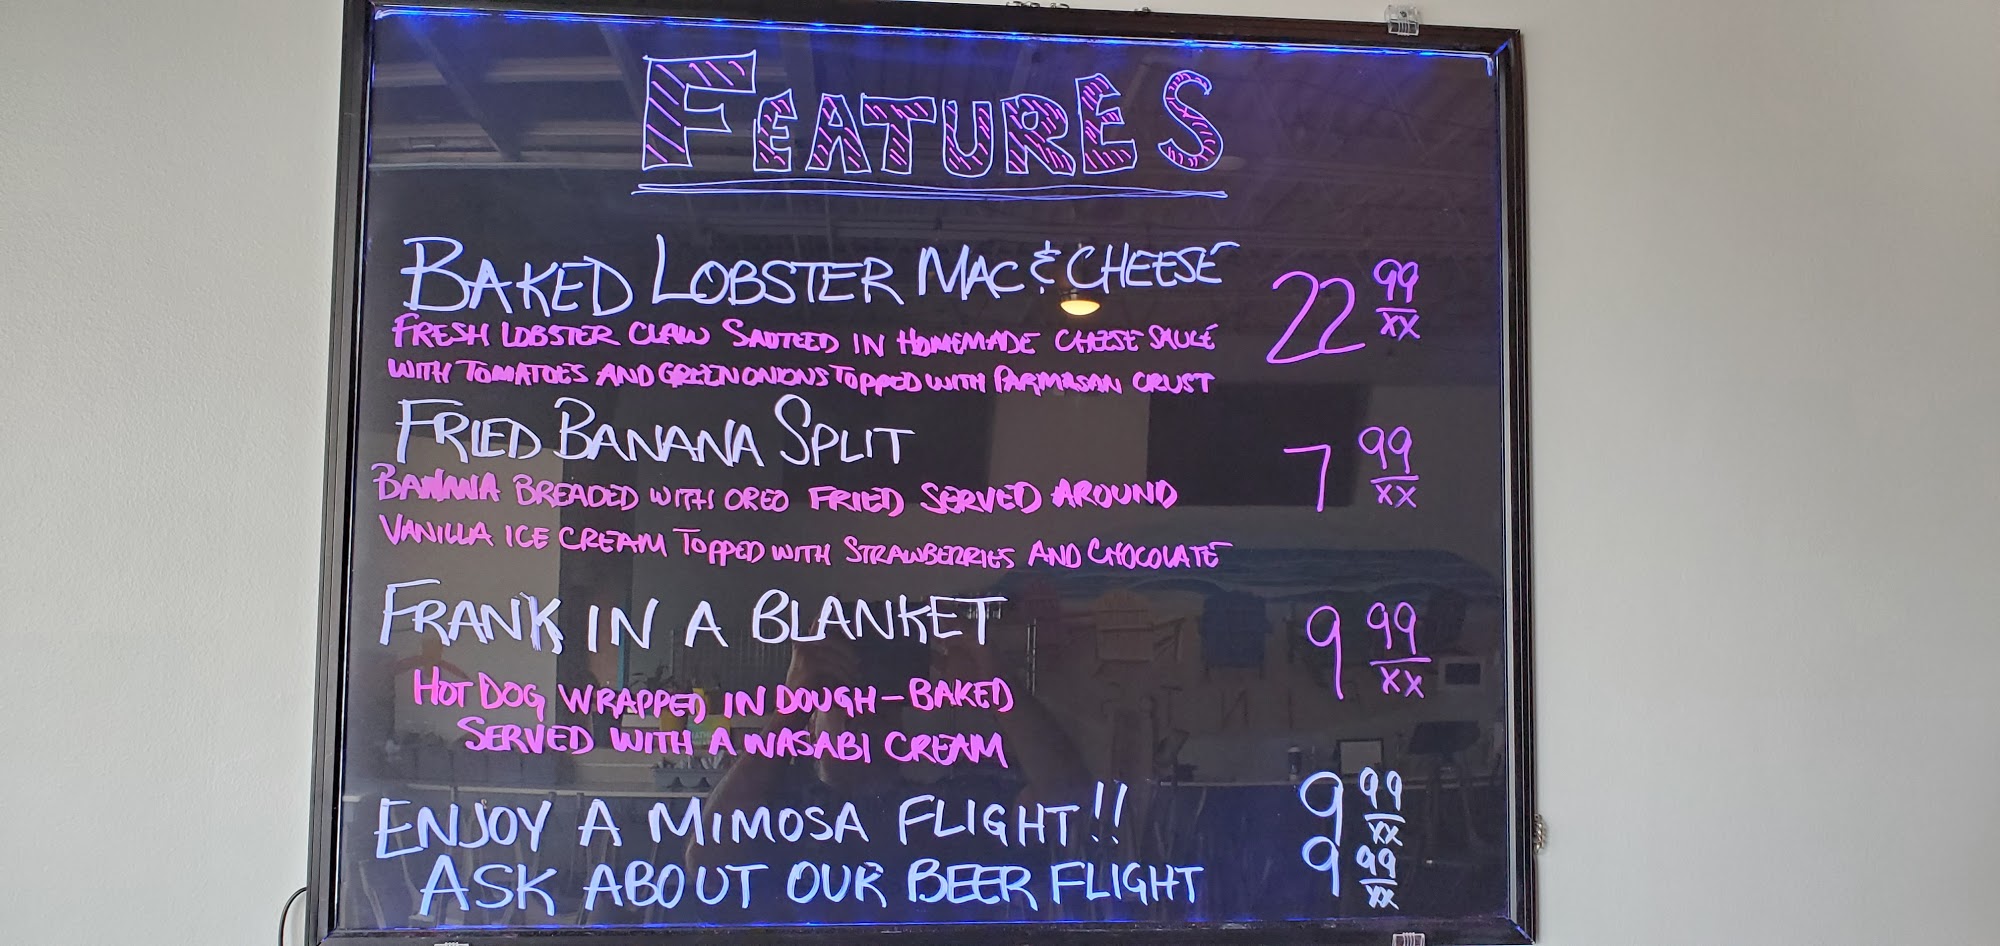 FEATURES
BAKED LOBSTER MAC & CHEESE 22 99/XX
FRESH LOBSTER CLAW SAUTEED IN HOMEMADE CHEESE SAUCE
WITH TOMATOES AND GREEN ONIONS TOPPED WITH PARMASAN CRUST
FRIED BANANA SPLIT 7 99/XX
BANANA BREADED WITH OREO FRIED SERVED AROUND
VANILLA ICE CREAM TOPPED WITH STRAWBERRIES AND CHOCOLATE
FRANK IN A BLANKET 9 99/XX
HOT DOG WRAPPED IN DOUGH-BAKED
SERVED WITH A WASABI CREAM
ENJOY A MIMOSA FLIGHT!! 9 99/XX
ASK ABOUT OUR BEER FLIGHT 9 99/XX